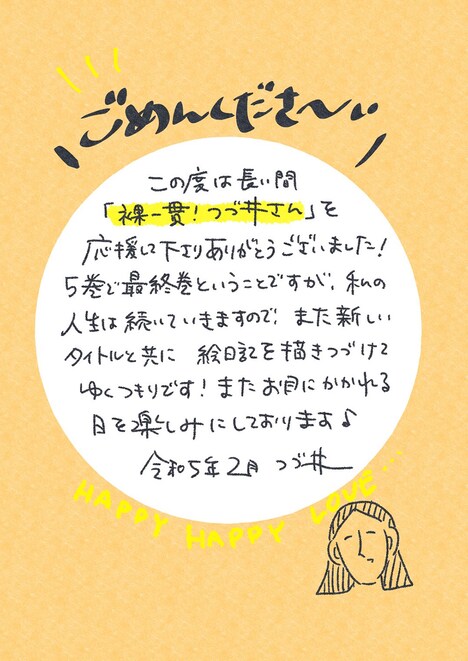 ごめんくださ〜い
この度は長い間
「裸一貫！つづ井さん」を
応援して下さりありがとうございました！
5巻で最終巻ということですが、私の
人生は続いていきますので、また新しい
タイトルと共に 絵日記を描きつづけて
ゆくつもりです！またお目にかかれる
日を楽しみにしております♪
令和5年2月 つづ井
HAPPY HAPPY LOVE...